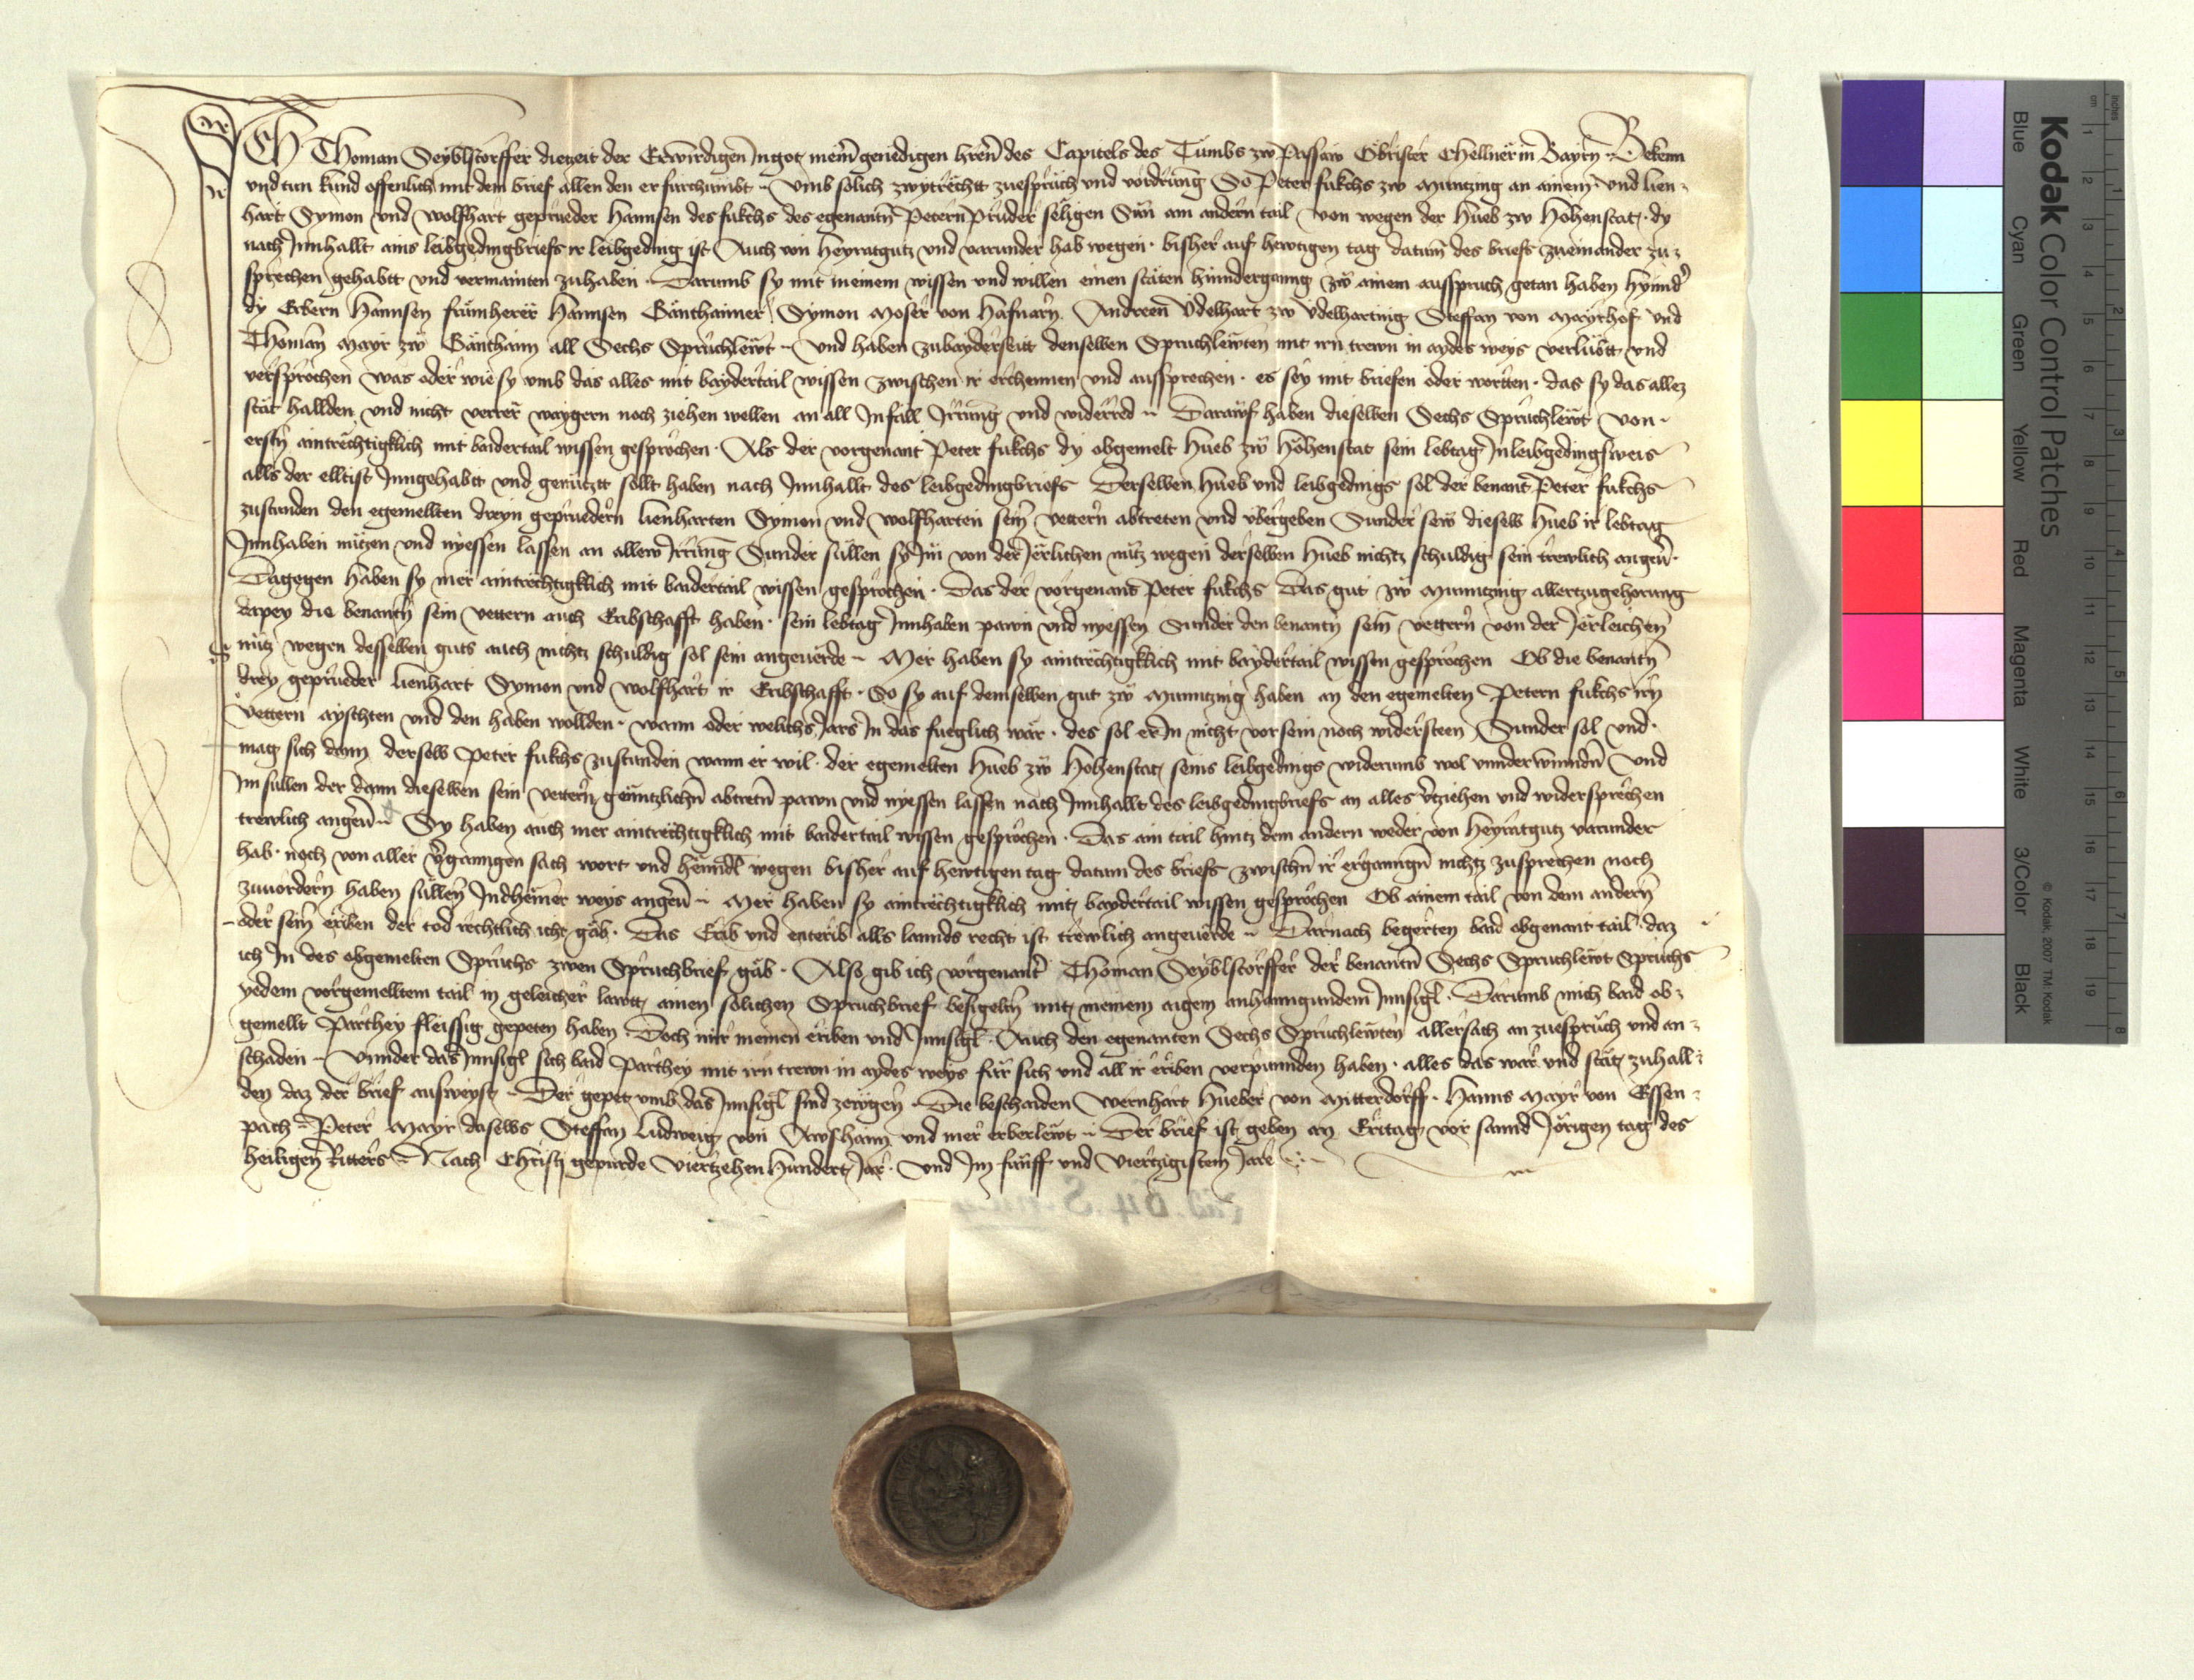 ICH Thoman Seyblstorffer diezeit der Erwirdigen Ingot mein genedigen hren des Capitels des Tumbs zw Passaw Obrister Chellner in Bayrn Bekenn
vnd tun kund offenlich mit dem brief allen den er furchumbt Vmb solich zwyträchtt zuesprüch vnd vordrung So Peter fukchs zw Muntzing an ainem vnd lien
hart Symon vnd wolfhart geprueder Hannsen des fukchs des egenantn Petern prüder seligen Sün am andern tail von wegen der Hueb zw Hohenstat dy
nach Innhallt ains leibgedingbriefs ir leibgeding ist Auch von heyratgutz vnd varunder hab wegen bisher auf hewtigen tag datum des briefs zueinander zu
sprechen gehabtt vnd vermainten zuhaben Darumb sy mit meinem wissen vnd willen einen stäten hinnderganng zw ainem ausspruch getan haben hynnd
dy Erbern Hannsen frümherer Hannsen Gänthaimer Symon Moser von Hafnarn Andreen Vdelhart zw Vdelharting Steffan von Mayrhof vnd
Thoman Mayr zw Gänthaim all Sechs Spruchlewt Vnd haben zubayderseitt denselben Spruchlewten mit irn trewn in aydes weys verlubtt vnd
versprochen was oder wie sy vmb das alles mit baydertail wissen zwischen ir erchennen vnd aussprechen es sey mit briefen oder wortten das sy das allez
stät hallden vnd nicht verrer waygern noch ziehen wellen an all Infäll Irrung vnd widerred Darauf haben dieselben Sechs Spruchlewt Von
erstn ainträchtigklich mit baidertail wissen gesprochen Als der vorgenant Peter fukchs dy obgemelt Hueb zw Hohenstat sein lebtag In leibgedingsweis
alls der elltist Inngehabtt vnd genutztt sollt haben nach Innhallt des leibgedingbriefs Derselben Hueb vnd leibgedings sol der benant Peter fukchs
zustunden den egemellten dreyn geprüedern lienharten Symon vnd wolfharten sein vettern abtreten vnd vbergeben Sunder sew dieselb Hueb ir lebtag
Innhaben nützen vnd nyessen lassen an allew Irrung Sunder süllen sy Im von der Järlichen nutz wegen derselben Hueb nichtz schuldig sein trewlich angeu
Dagegen haben sy mer ainträchtigklich mit baidertail wissen gesprochen Das der vorgenant Peter fukchs Das gut zw Munntzing allertzugehorung
dapey die benantn sein vettern auch Eribschafft haben sein lebtag Innhaben pawn vnd nyessen Sunder den benantn sein vettern von der Järleichen
nutz wegen desselben guts auch nichtz schuldig sol sein angeuerde Mer haben sy ainträchtigklich mit baydertail wissen gesprochen Ob die benantn
drey geprüeder lienhart Symon vnd wolfhart ir Eribschafft So sy auf demselben gut zw Munntzing haben an den egemelten Petern fukchs irn
Vettern ayschten vnd den haben wollden wann oder welichs Jars In das fueglich wär des sol er In nicht vorsein noch widersteen Sunder sol vnd
mag sich dann derselb Peter fukchs zustunden wann er wil der egemelten Hueb zw Hohenstat seins leibgedings widerumb wol vnnderwinndn Vnd
Im sullen der dann dieselben sein vettern gäntzlichn abtretn pawn vnd nyessen lassen nach Innhallt des leibgedingbriefs an alles vtziehen vnd widersprechen
trewlich angeu Sy haben auch mer ainträchtigklich mit baidertail wissen gesprochen Das ain tail hintz dem andern weder von heyratgutz varunder
hab noch von aller vganngen sach wort vnd hänndl wegen bisher auf hewtigen tag datum des briefs zwischn ir erganngn nichtz zusprechen noch
zuuordern haben süllen Indhainer weys angeu Mer haben sy ainträchtigklich mit baydertail wissen gesprochen Ob ainem tail von dem andern
oder sein eriben der tod rechtlich icht gäb Das Erib vnd enterib alls lannds recht ist trewlich angeuerde Darnach begerten baid obgenant tail daz
ich In des obgemelten Spruchs zwen Spruchbrief gäb Also gib ich vorgenant Thoman Seyblstorffer der benantn Sechs Spruchlewt Spruchs
yedem vorgemelltem tail in geleicher lawtt ainen solichen Spruchbrief besigeltn mit meinem aigem anhanngundem Innsigl Darumb mich baid ob
gemellt Parthey fleissig gepeten haben Doch mir meinen eriben vnd Innsigl Auch den egenanten Sechs Spruchlewten allersach an zuesprüch vnd an
schaden Vnnder das Innsigl sich baid Parthey mit irn trewn in aydes weys für sich vnd all ir eriben verpunnden haben alles das war vnd stät zuhall
den daz der brief ausweyst Der gepet vmb das Innsigl sind zewgen Die beschaiden Wernhart Hueber von Mitterdorff Hanns Mayr von Essen
pach Peter Mayr daselbs Steffan Ludweig von Awshaim vnd mer erberlewt Der brief ist geben an Eritag vor sannd Jörigen tag des
heiligen Ritters Nach Christi gepurde Viertzehen Hundert Jar Vnd Im fünff vnd Viertzigistem Jare
Kodak Color Control Patches
Blue Cyan Green Yellow Red Magenta White 3/Color Black
© Kodak, 2007 TM: Kodak
inches 1 2 3 4 5 6 7 8
cm 1 2 3 4 5 6 7 8 9 10 11 12 13 14 15 16 17 18 19